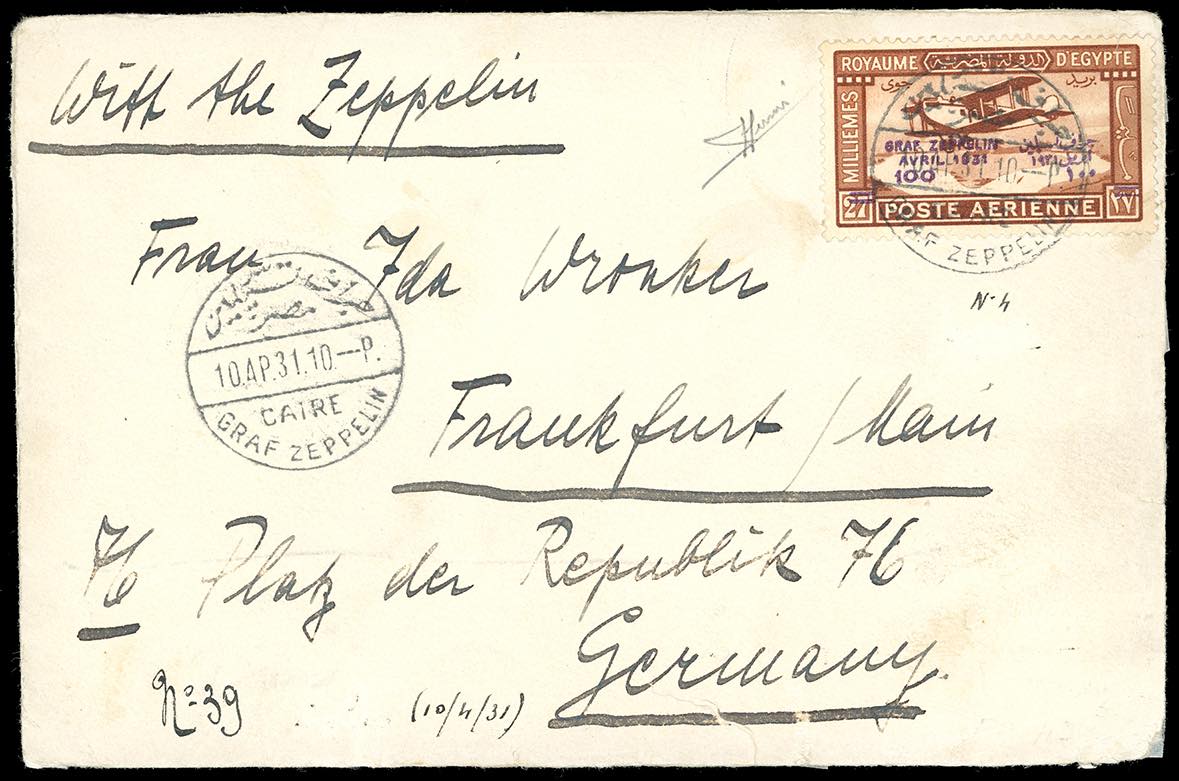 With the Zeppelin
ROYAUME الدولة المصرية D'EGYPTE
بريد جوى
MILLIEMES
GRAF ZEPPELIN
AVRIL 1931
100 ١٠٠
27 POSTE AERIENNE ٢٧
GRAF ZEPPELIN
Frau Ida Wronker
N-4
مصر
10.AP.31.10.—P.
CAIRE
GRAF ZEPPELIN
Frankfurt / Main
76 Platz der Republik 76
Germany.
No 39 (10/4/31)